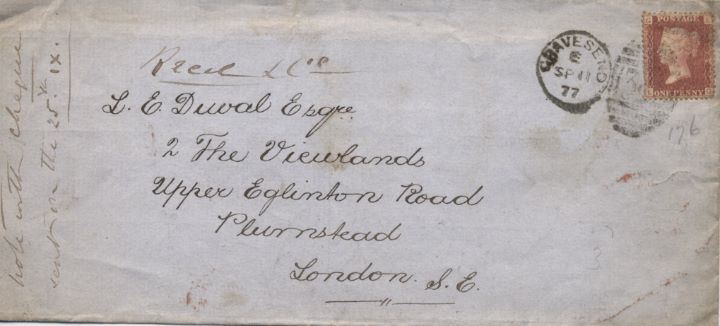 note with cheque
sent on the 25th IX.
L. E. Duval Esqre
2 The Viewlands
Upper Eglinton Road
Plumstead
London. S. E.
GRAVESEND
E
SP 11
77
POSTAGE
ONE PENNY
176